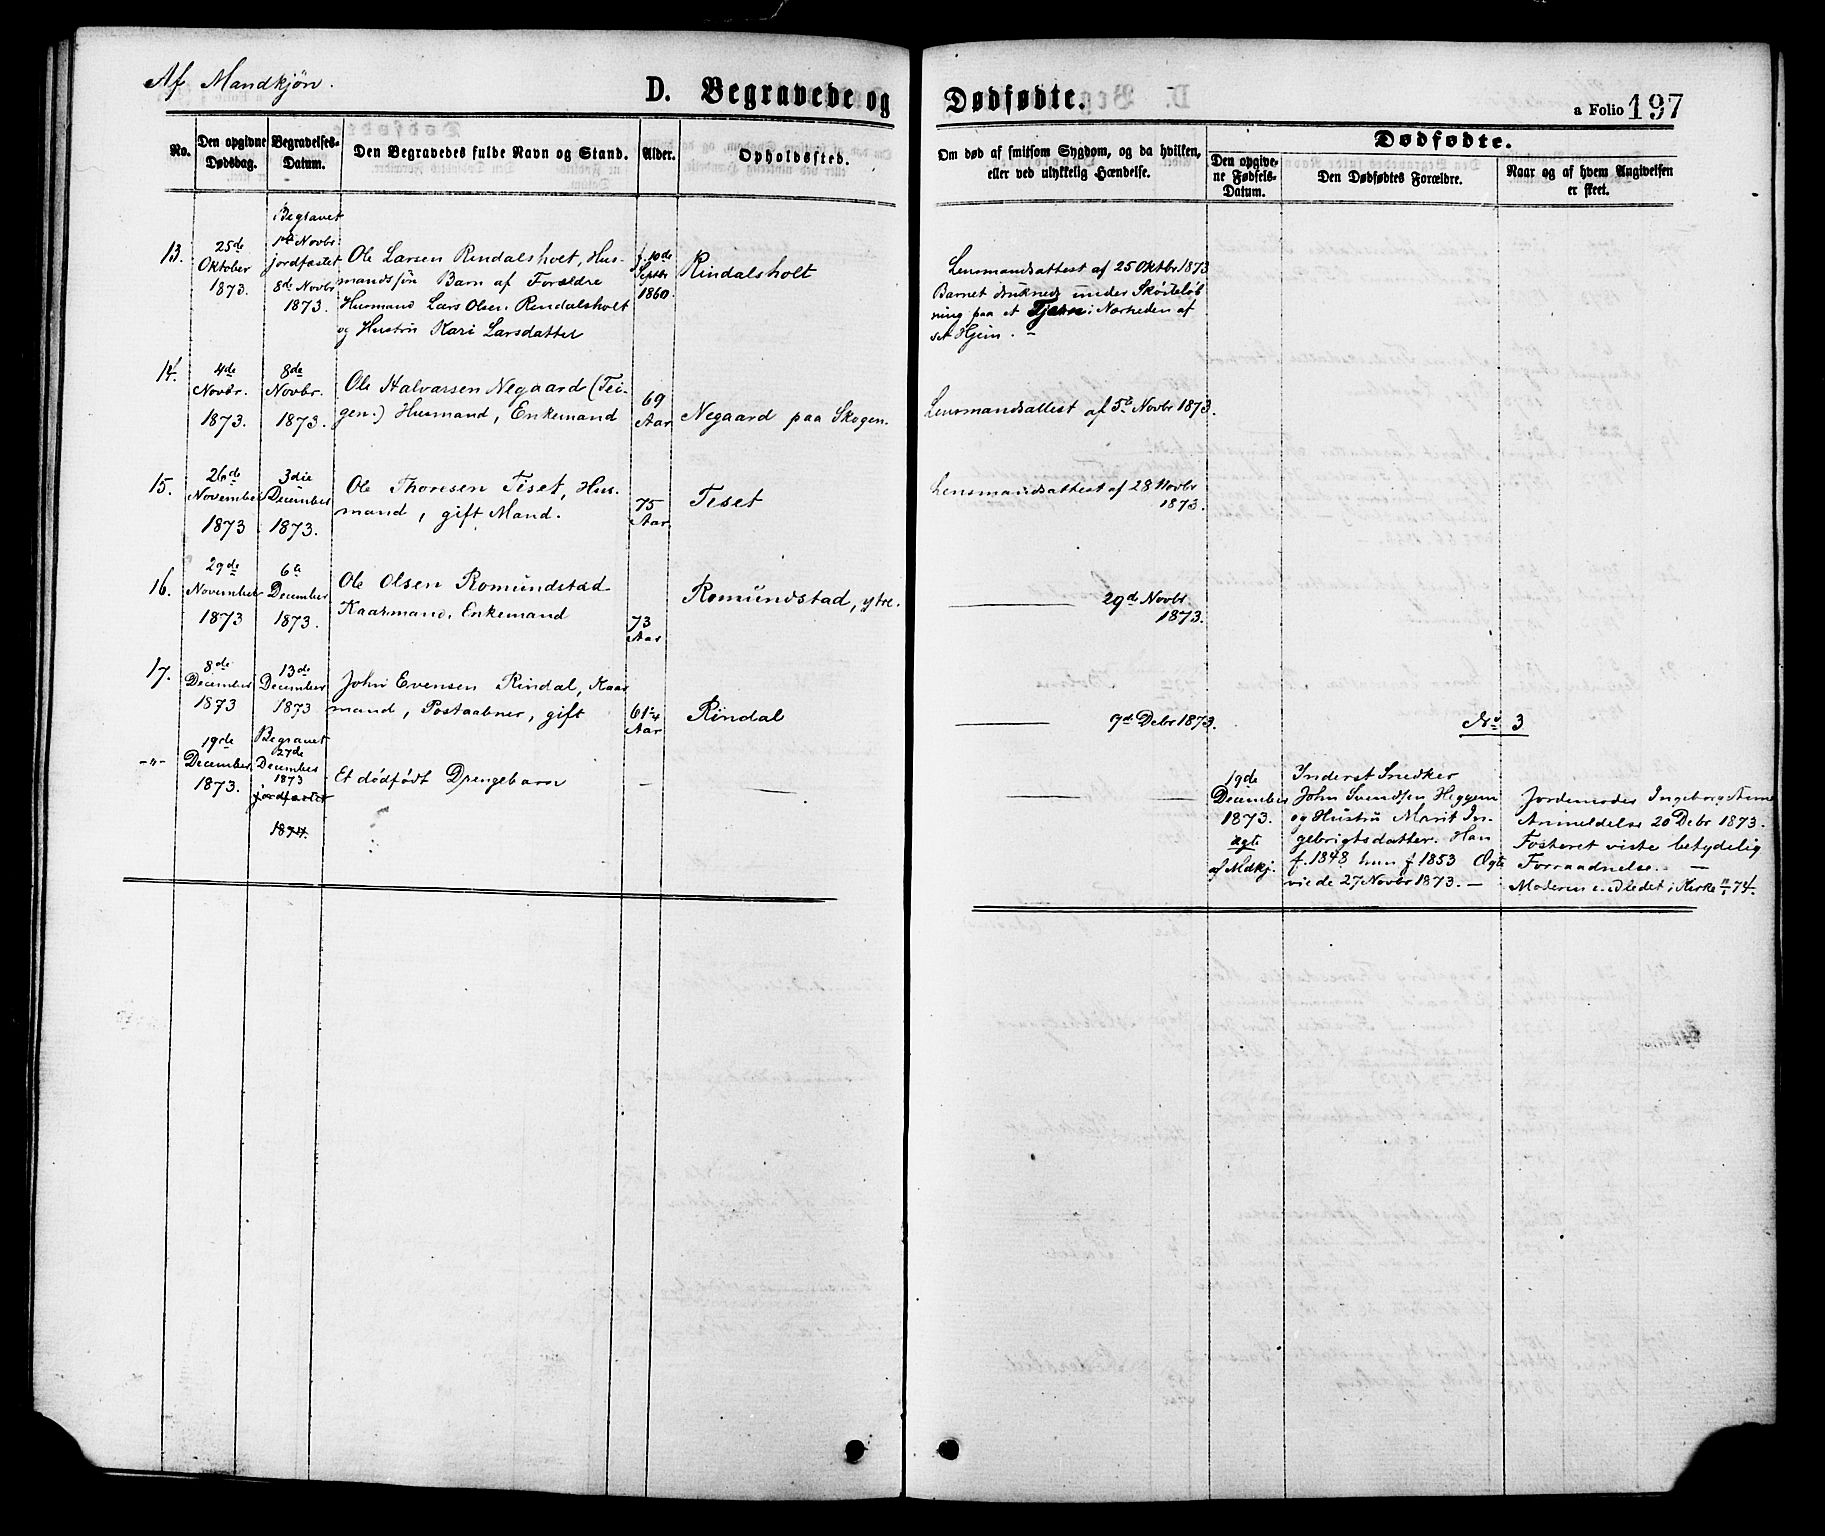 Af Mandkjøn.
D. Begravede og Dødfødte.
a Folio 197
No.
Den opgivne Dødsdag.
Begravelses-Datum.
Den Begravedes fulde Navn og Stand.
Alder.
Opholdssted.
Om død af smitsom Sygdom, og da hvilken,
eller ved ulykkelig Hændelse.
Dødfødte.
Den opgive-
ne Fødsels-
Datum.
Den Dødfødtes Forældre.
Naar og af hvem Angivelsen
er skeet.
13.
25de
Oktober
1873.
Begravet
1ste Novbr
jordfæstet
8de Novbr
1873.
Ole Larsen Rindalsholt, Hus-
mandssøn Barn af Forældre
Husmand Lars Olsen Rindalsholt
og Hustru Kari Larsdatter
f. 10de
Septbr
1860.
Rindalsholt
Lensmandsattest af 25 Oktbr 1873
Barnet druknede under Skøiteløb
ning paa et Tjern i Nærheden af
set Hjem.
14.
4de
Novbr.
1873.
8de
Novbr.
1873.
Ole Halvorsen Negaard (Tei-
gen.) Husmand, Enkemand
69
Aar
Negaard paa Skogen.
Lensmandsattest af 5te Novbr 1873.
15.
26de
November
1873
3die
December
1873.
Ole Thoresen Tiset, Hus-
mand, gift Mand.
75
Aar
Tiset
Lensmandsattest af 28 Novbr
1873.
16.
29de
November
1873
6te
December
1873.
Ole Olsen Romundstad
Kaarmand, Enkemand
73
Aar
Romundstad, ytre.
29de Novbr.
1873.
17.
8de
December
1873
13de
December
1873
John Evensen Rindal, Kaar
mand, Postaabner, gift
61 1/4
Aar
Rindal
9de Debr 1873.
No 3
-"-
19de
December
1873.
Begravet
27de
December
1873
jordfæstet
1874.
Et dødfødt Drengebarn
—
—
19de
December
1873.
ægte
af Mdkj.
Inderst Snedker
John Svendsen Heggem
og Hustru Marit In-
gebrigtsdatter. Han
f. 1848 hun f 1853 Ægte
viede 27 Novbr 1873. —
Jordemoder Ingeborg Arne
Anmeldelse 20 Debr 1873.
Fosteret viste betydelig
Forraadnelse. —
Moderen i Kirke 74.